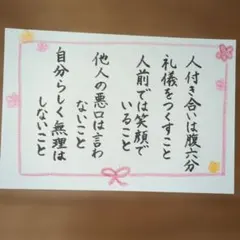 人付き合いは腹六分
礼儀をつくすこと
人前では笑顔で
いること
他人の悪口は言わ
ないこと
自分らしく無理は
しないこと